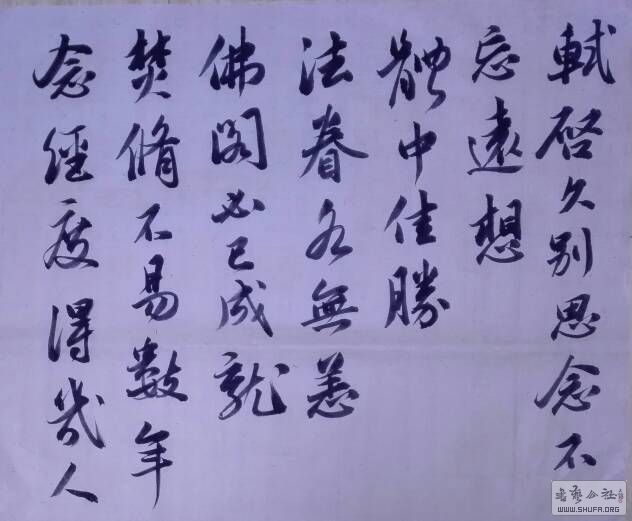 軾啓久別思念不
忘遠想
體中佳勝
法眷各無恙
佛閣必已成就
焚脩不易數年
念經度得幾人
書藝公社
WWW.SHUFA.ORG